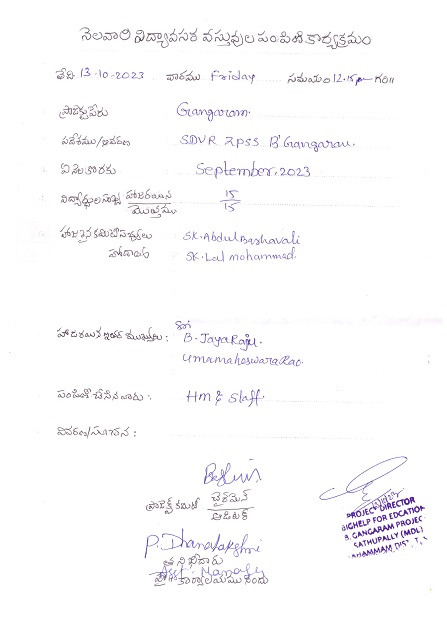 నెలవారి విద్యావసర వస్తువుల పంపిణి కార్యక్రమం
తేది: 13-10-2023 వారము Friday సమయం 12.15 గం॥
ప్రాజెక్టు పేరు Gangaram.
ప్రదేశము/వివరణ SDVR ZPSS B'Gangaram.
ఏ నెల కొరకు September, 2023
విద్యార్థుల సంఖ్య హాజరయిన 15
మొత్తము 15
హాజరైన కమిటీ సభ్యులు SK. Abdul Bashavali
హోదా SK. Lal mohammed.
Sri
హాజరయిన ఇతర ముఖ్యులు: B. Jaya Raju.
Umamaheswara Rao.
పంపిణీ చేసిన వారు: HM & Staff.
వివరణ/సూచన:
ప్రాజెక్ట్ కమిటీ చైర్మెన్
ఆడిటర్
P. Dhanalakshmi
తనిఖీదారు
Asst. Manager
కార్యాలయము నందు
PROJECT DIRECTOR
BIGHELP FOR EDCATION
B. GANGARAM PROJEC
SATHUPALLY (MDL)
KHAMMAM DIST, T.S